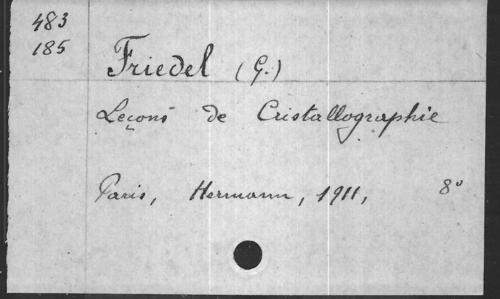 483
185
Friedel (G.)
Leçons de Cristallographie
Paris, Hermann, 1911, 8°